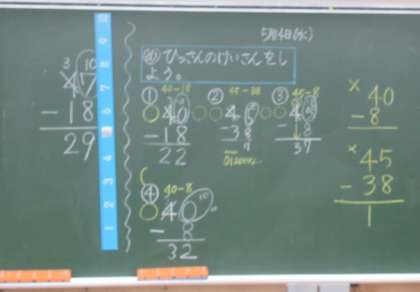 5月4日(水)
め ひっさんのけいさんをし
よう。
3 10
47
-18
29
① 40-18
40
-18
22
②
-38
③ 40-8
-8
37
④ 40-8
40 10
-8
32
× 40
-8
× 45
-38
1